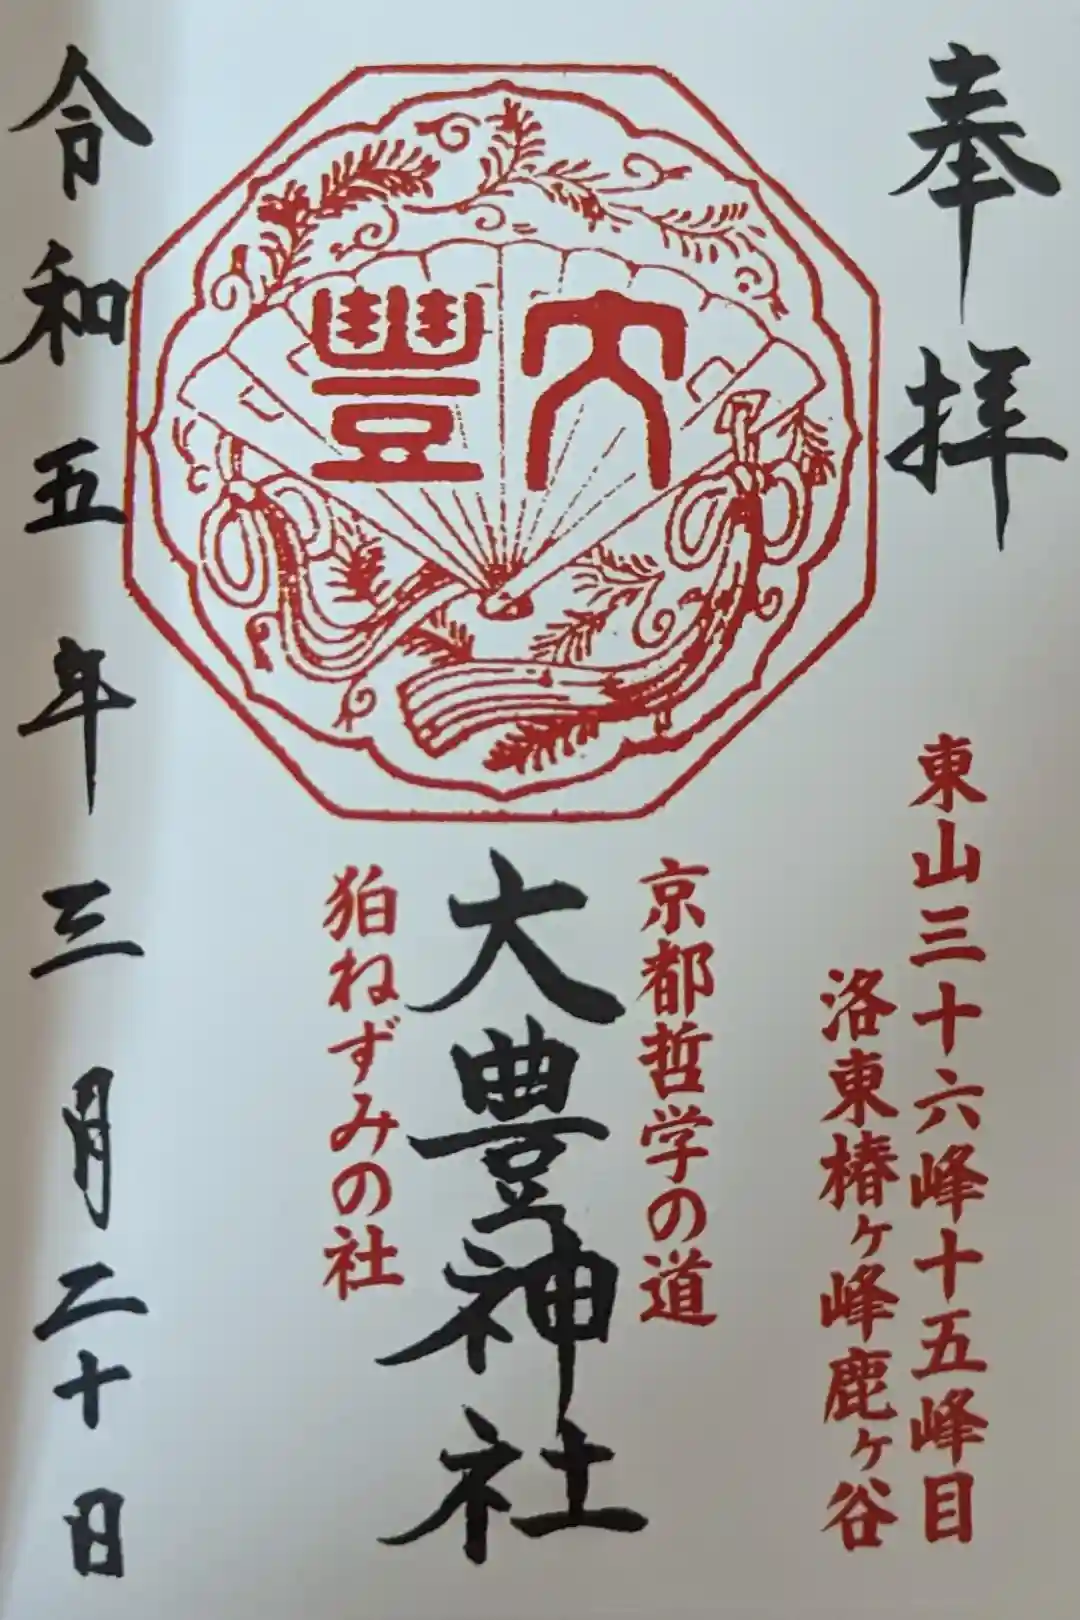 奉拝
東山三十六峰十五峰目
洛東椿ヶ峰鹿ヶ谷
大豊
京都哲学の道
大豊神社
狛ねずみの社
令和五年三月二十日